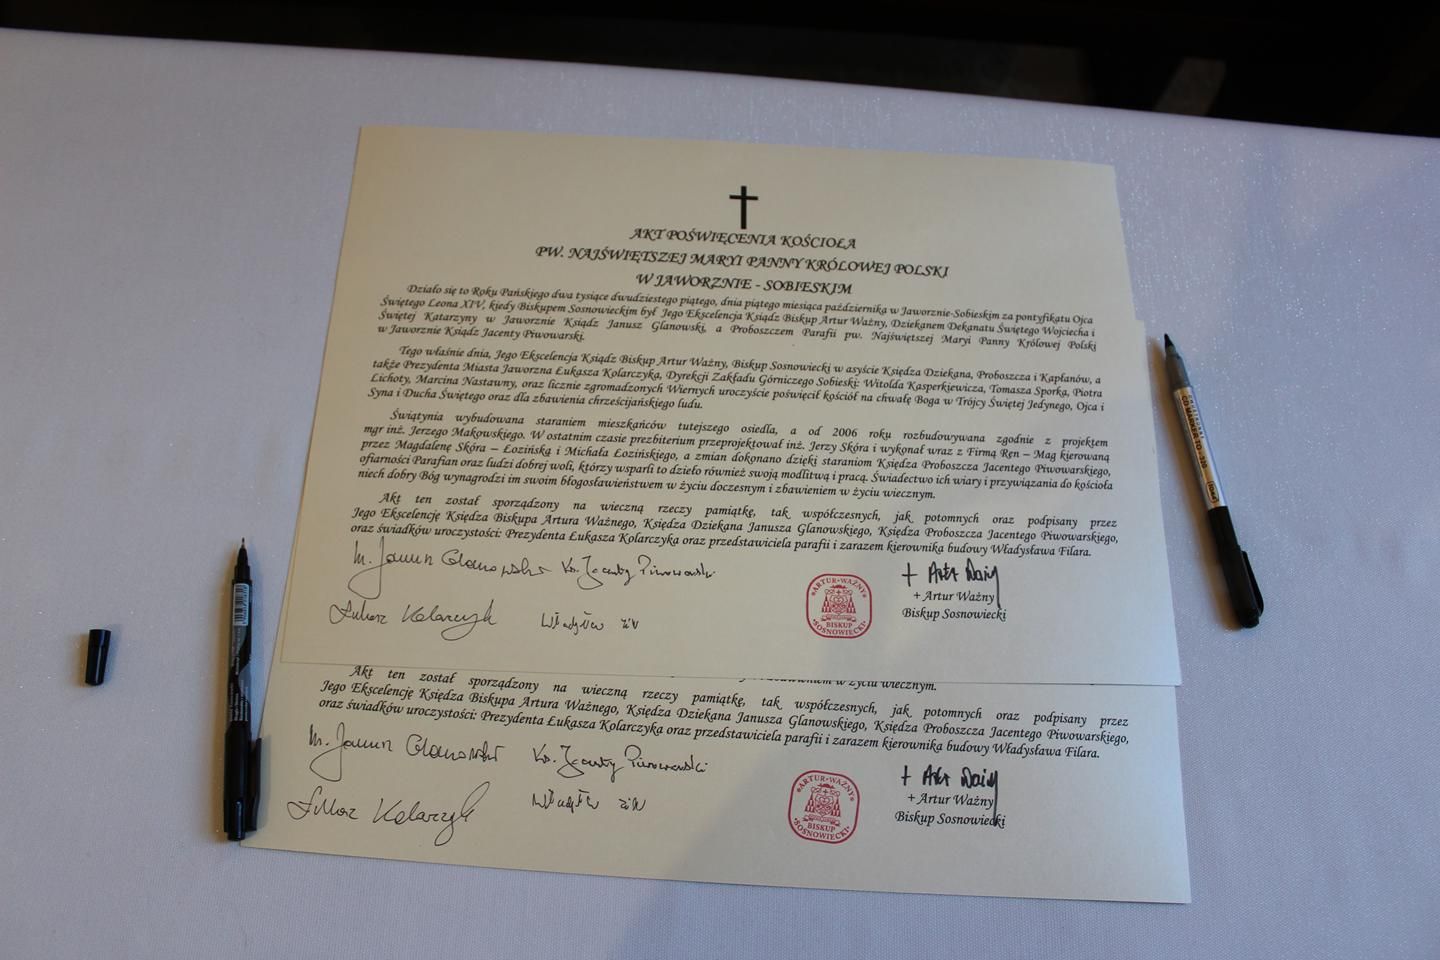 AKT POŚWIĘCENIA KOŚCIOŁA
PW. NAJŚWIĘTSZEJ MARYI PANNY KRÓLOWEJ POLSKI
W JAWORZNIE - SOBIESKIM
Działo się to Roku Pańskiego dwa tysiące dwudziestego piątego, dnia piątego miesiąca października w Jaworznie-Sobieskim za pontyfikatu Ojca
Świętego Leona XIV, kiedy Biskupem Sosnowieckim był Jego Ekscelencja Ksiądz Biskup Artur Ważny, Dziekanem Dekanatu Świętego Wojciecha i
Świętej Katarzyny w Jaworznie Ksiądz Janusz Glanowski, a Proboszczem Parafii pw. Najświętszej Maryi Panny Królowej Polski
w Jaworznie Ksiądz Jacenty Piwowarski.
Tego właśnie dnia, Jego Ekscelencja Ksiądz Biskup Artur Ważny, Biskup Sosnowiecki w asyście Księdza Dziekana, Proboszcza i Kapłanów, a
także Prezydenta Miasta Jaworzna Łukasza Kolarczyka, Dyrekcji Zakładu Górniczego Sobieski: Witolda Kasperkiewicza, Tomasza Sporka, Piotra
Lichoty, Marcina Nastawny, oraz licznie zgromadzonych Wiernych uroczyście poświęcił kościół na chwałę Boga w Trójcy Świętej Jedynego, Ojca i
Syna i Ducha Świętego oraz dla zbawienia chrześcijańskiego ludu.
Świątynia wybudowana staraniem mieszkańców tutejszego osiedla, a od 2006 roku rozbudowywana zgodnie z projektem
mgr inż. Jerzego Makowskiego. W ostatnim czasie prezbiterium przeprojektował inż. Jerzy Skóra i wykonał wraz z Firmą Ren – Mag kierowaną
przez Magdalenę Skóra – Łozińską i Michała Łozińskiego, a zmian dokonano dzięki staraniom Księdza Proboszcza Jacentego Piwowarskiego,
ofiarności Parafian oraz ludzi dobrej woli, którzy wsparli to dzieło również swoją modlitwą i pracą. Świadectwo ich wiary i przywiązania do kościoła
niech dobry Bóg wynagrodzi im swoim błogosławieństwem w życiu doczesnym i zbawieniem w życiu wiecznym.
Akt ten został sporządzony na wieczną rzeczy pamiątkę, tak współczesnych, jak potomnych oraz podpisany przez
Jego Ekscelencję Księdza Biskupa Artura Ważnego, Księdza Dziekana Janusza Glanowskiego, Księdza Proboszcza Jacentego Piwowarskiego,
oraz świadków uroczystości: Prezydenta Łukasza Kolarczyka oraz przedstawiciela parafii i zarazem kierownika budowy Władysława Filara.
Janusz Glanowski Ks. Jacenty Piwowarski
Łukasz Kolarczyk
ARTUR WAŻNY
BISKUP
SOSNOWIECKI
+ Artur Ważny
+ Artur Ważny
Biskup Sosnowiecki
w życiu wiecznym.
Akt ten został sporządzony na wieczną rzeczy pamiątkę, tak współczesnych, jak potomnych oraz podpisany przez
Jego Ekscelencję Księdza Biskupa Artura Ważnego, Księdza Dziekana Janusza Glanowskiego, Księdza Proboszcza Jacentego Piwowarskiego,
oraz świadków uroczystości: Prezydenta Łukasza Kolarczyka oraz przedstawiciela parafii i zarazem kierownika budowy Władysława Filara.
Janusz Glanowski Ks. Jacenty Piwowarski
Łukasz Kolarczyk
ARTUR WAŻNY
BISKUP
SOSNOWIECKI
+ Artur Ważny
+ Artur Ważny
Biskup Sosnowiecki